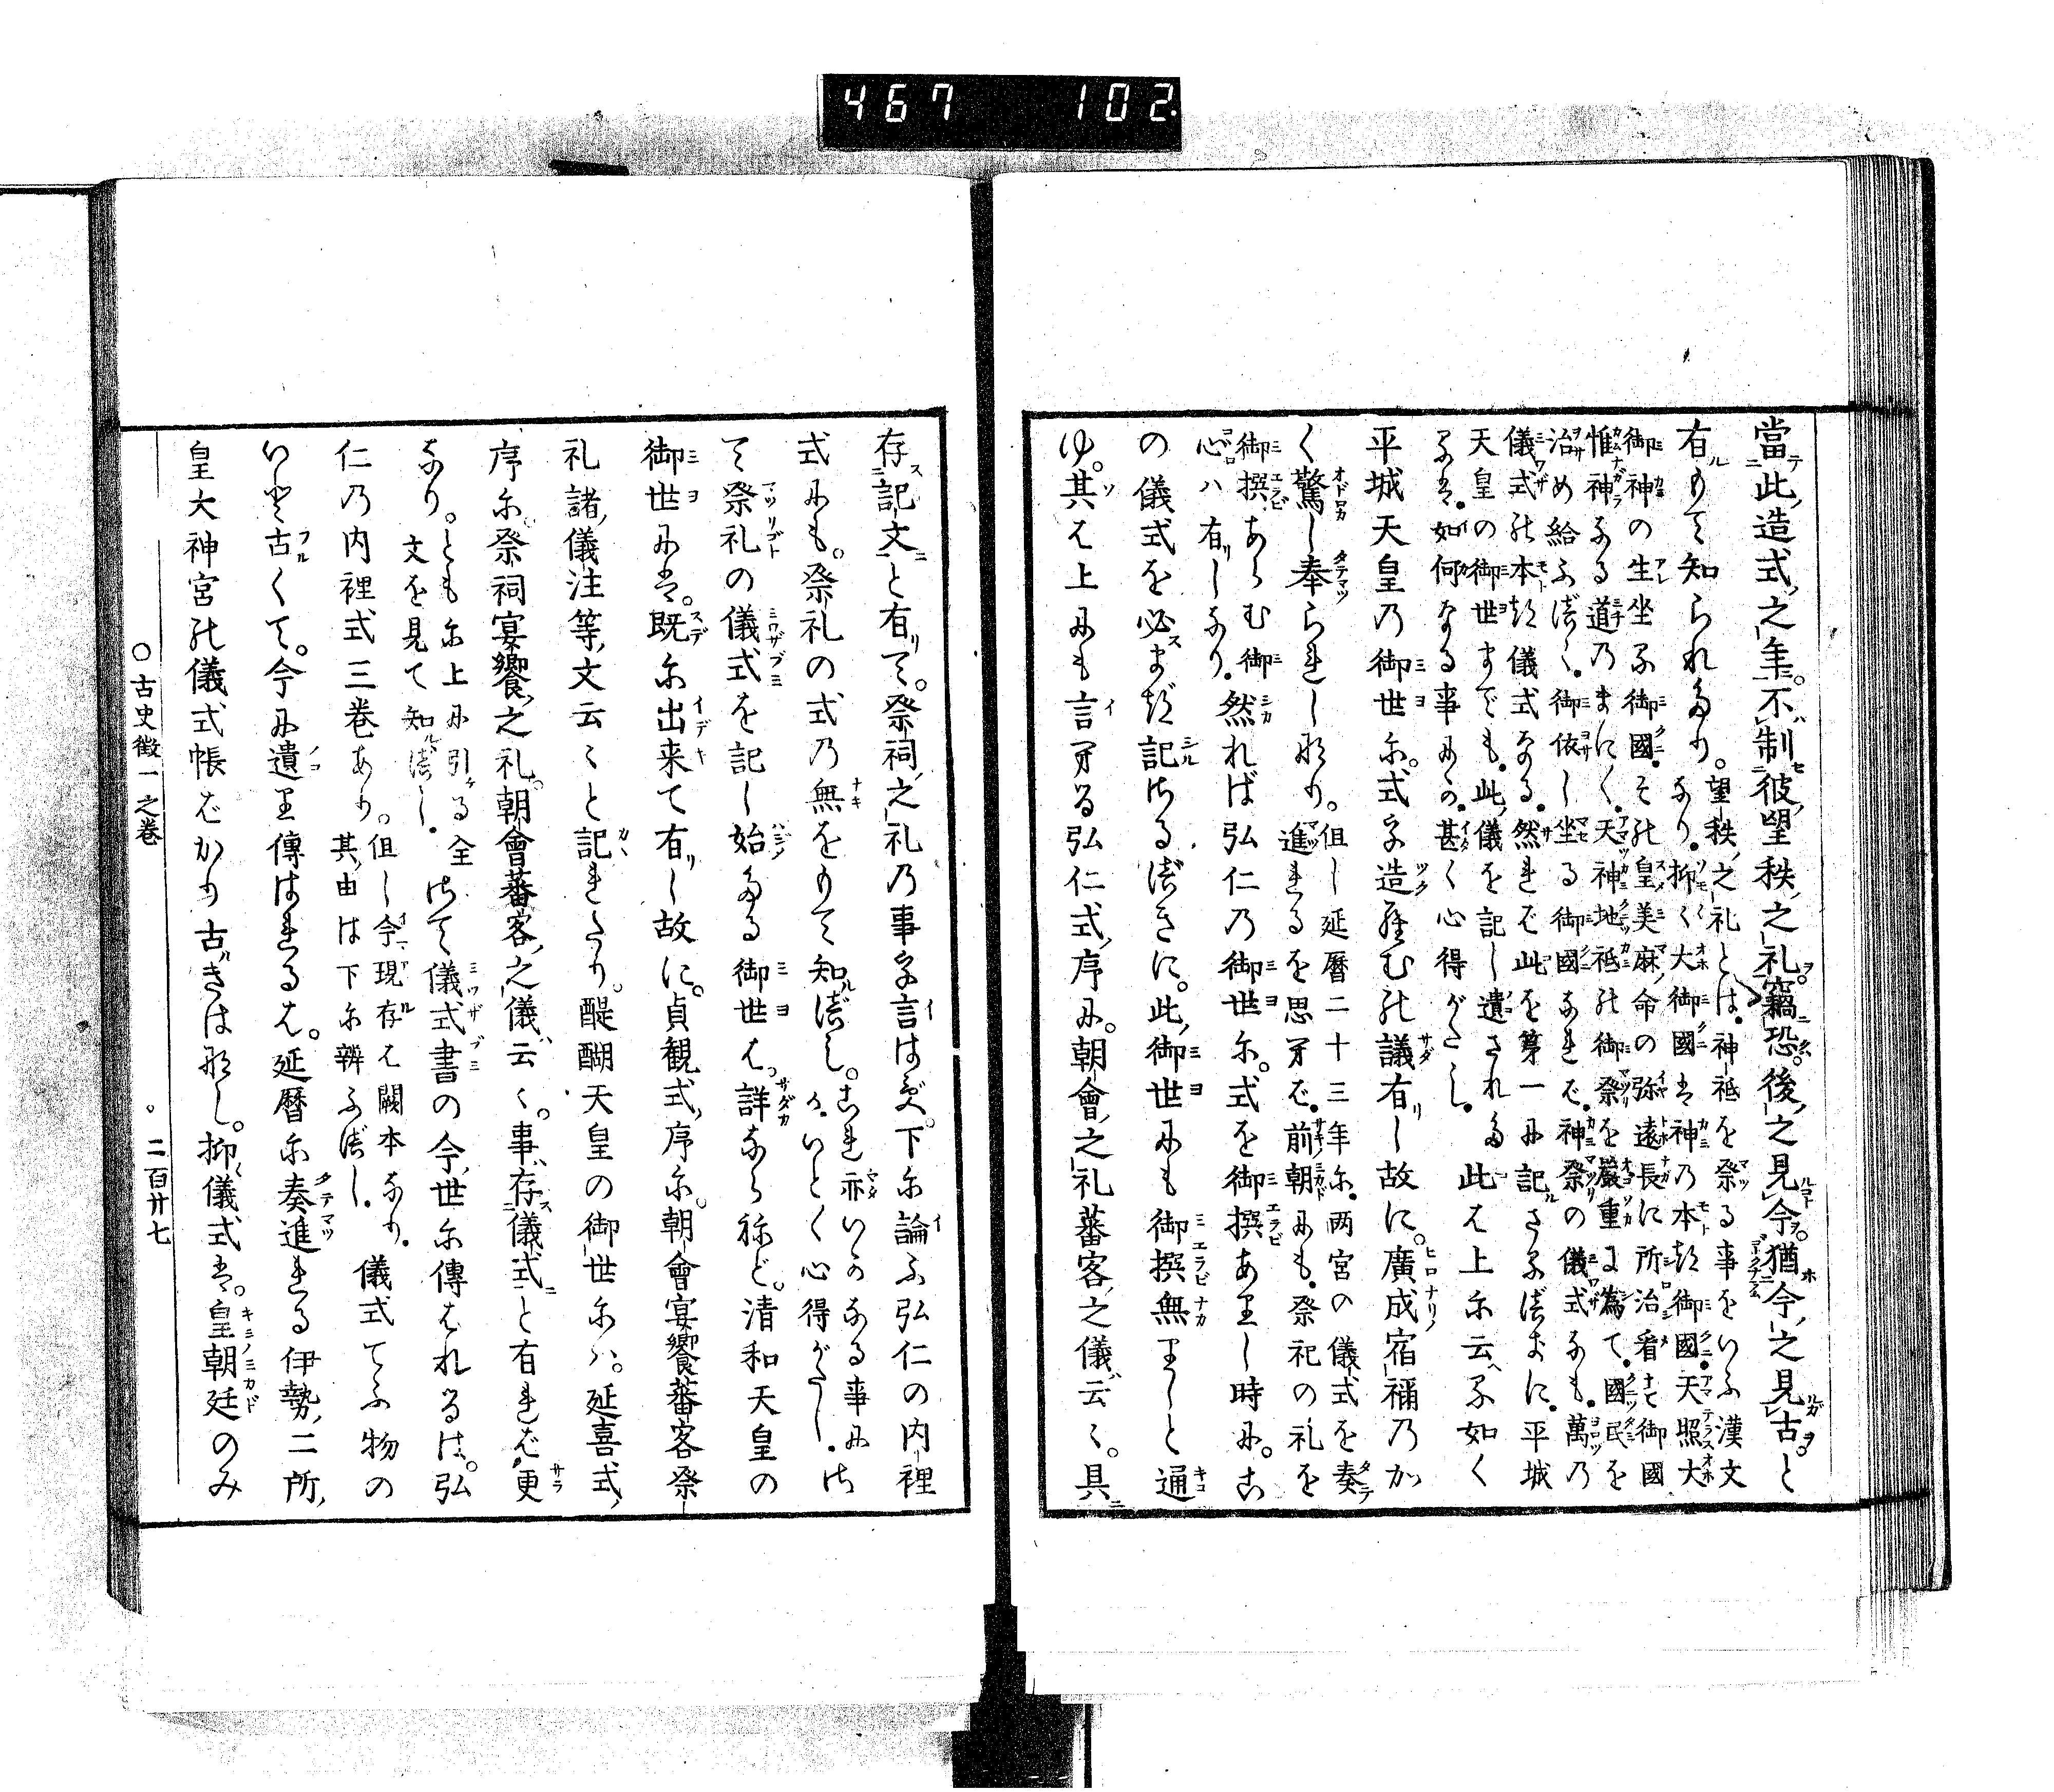 467 102
當此造式之年。不制彼望秩之礼。竊恐。後之見今。猶今之見古。と
有るもて知られたり。望秩之礼とは。神祇を祭る事をいふ漢文
なり。抑〻大御國は神乃本つ御國。天照大
御神の生坐る御國。その皇美麻命の弥遠長に所治看す御國
惟神なる道乃まに〱。天神地祇の御祭を嚴重に為て。國民を
治め給ふべく。御依し坐る御國なれば。神祭の儀式なも。萬乃
儀式の本つ儀式なる。然れば此を第一に記さるべきに。平城
天皇の御世までも。此儀を記し遺された
るは。如何なる事にか。甚〱心得がたし。此は上に云へる如く
平城天皇乃御世に。式を造らむの議有し故に。廣成宿禰乃か
く驚し奉られしなり。但し延暦二十三年に。両宮の儀式を奏
進れるを思へば。前朝にも。祭祀の礼を
御撰あらむ御
心は有しなり。然れば弘仁乃御世に。式を御撰ありし時に。こ
の儀式を必まづ記さるべきに。此御世にも御撰無りしと通
ゆ。其は上にも言へる弘仁式序に。朝會之礼蕃客之儀云〻。具
存記文と有て。祭祠之礼乃事を言はず。下に論ふ弘仁の内裡
式にも。祭礼の式乃無をもて知べし。これ亦いかなる事に
か。いと〱心得がたし。さ
て祭礼の儀式を記し始たる御世は。詳ならねど。清和天皇の
御世には。既に出来て有し故に。貞観式序に。朝會宴饗蕃客祭
礼諸儀注等文云〻と記れたり。醍醐天皇の御世には。延喜式
序に祭祠宴饗之礼。朝會蕃客之儀云〻。事存儀式と有れば更
なり。ともに上に引る全
文を見て知べし。さて儀式書の今世に傳はれるは。弘
仁乃内裡式三巻あり。但し今現存は闕本なり。
其由は下に辨ふべし。儀式てふ物の
いと古くて。今に遺り傳はれるは。延暦に奏進れる伊勢二所
皇大神宮の儀式帳ばかり古きは無し。抑儀式は。皇朝廷のみ
○古史徴一之巻 二百廿七